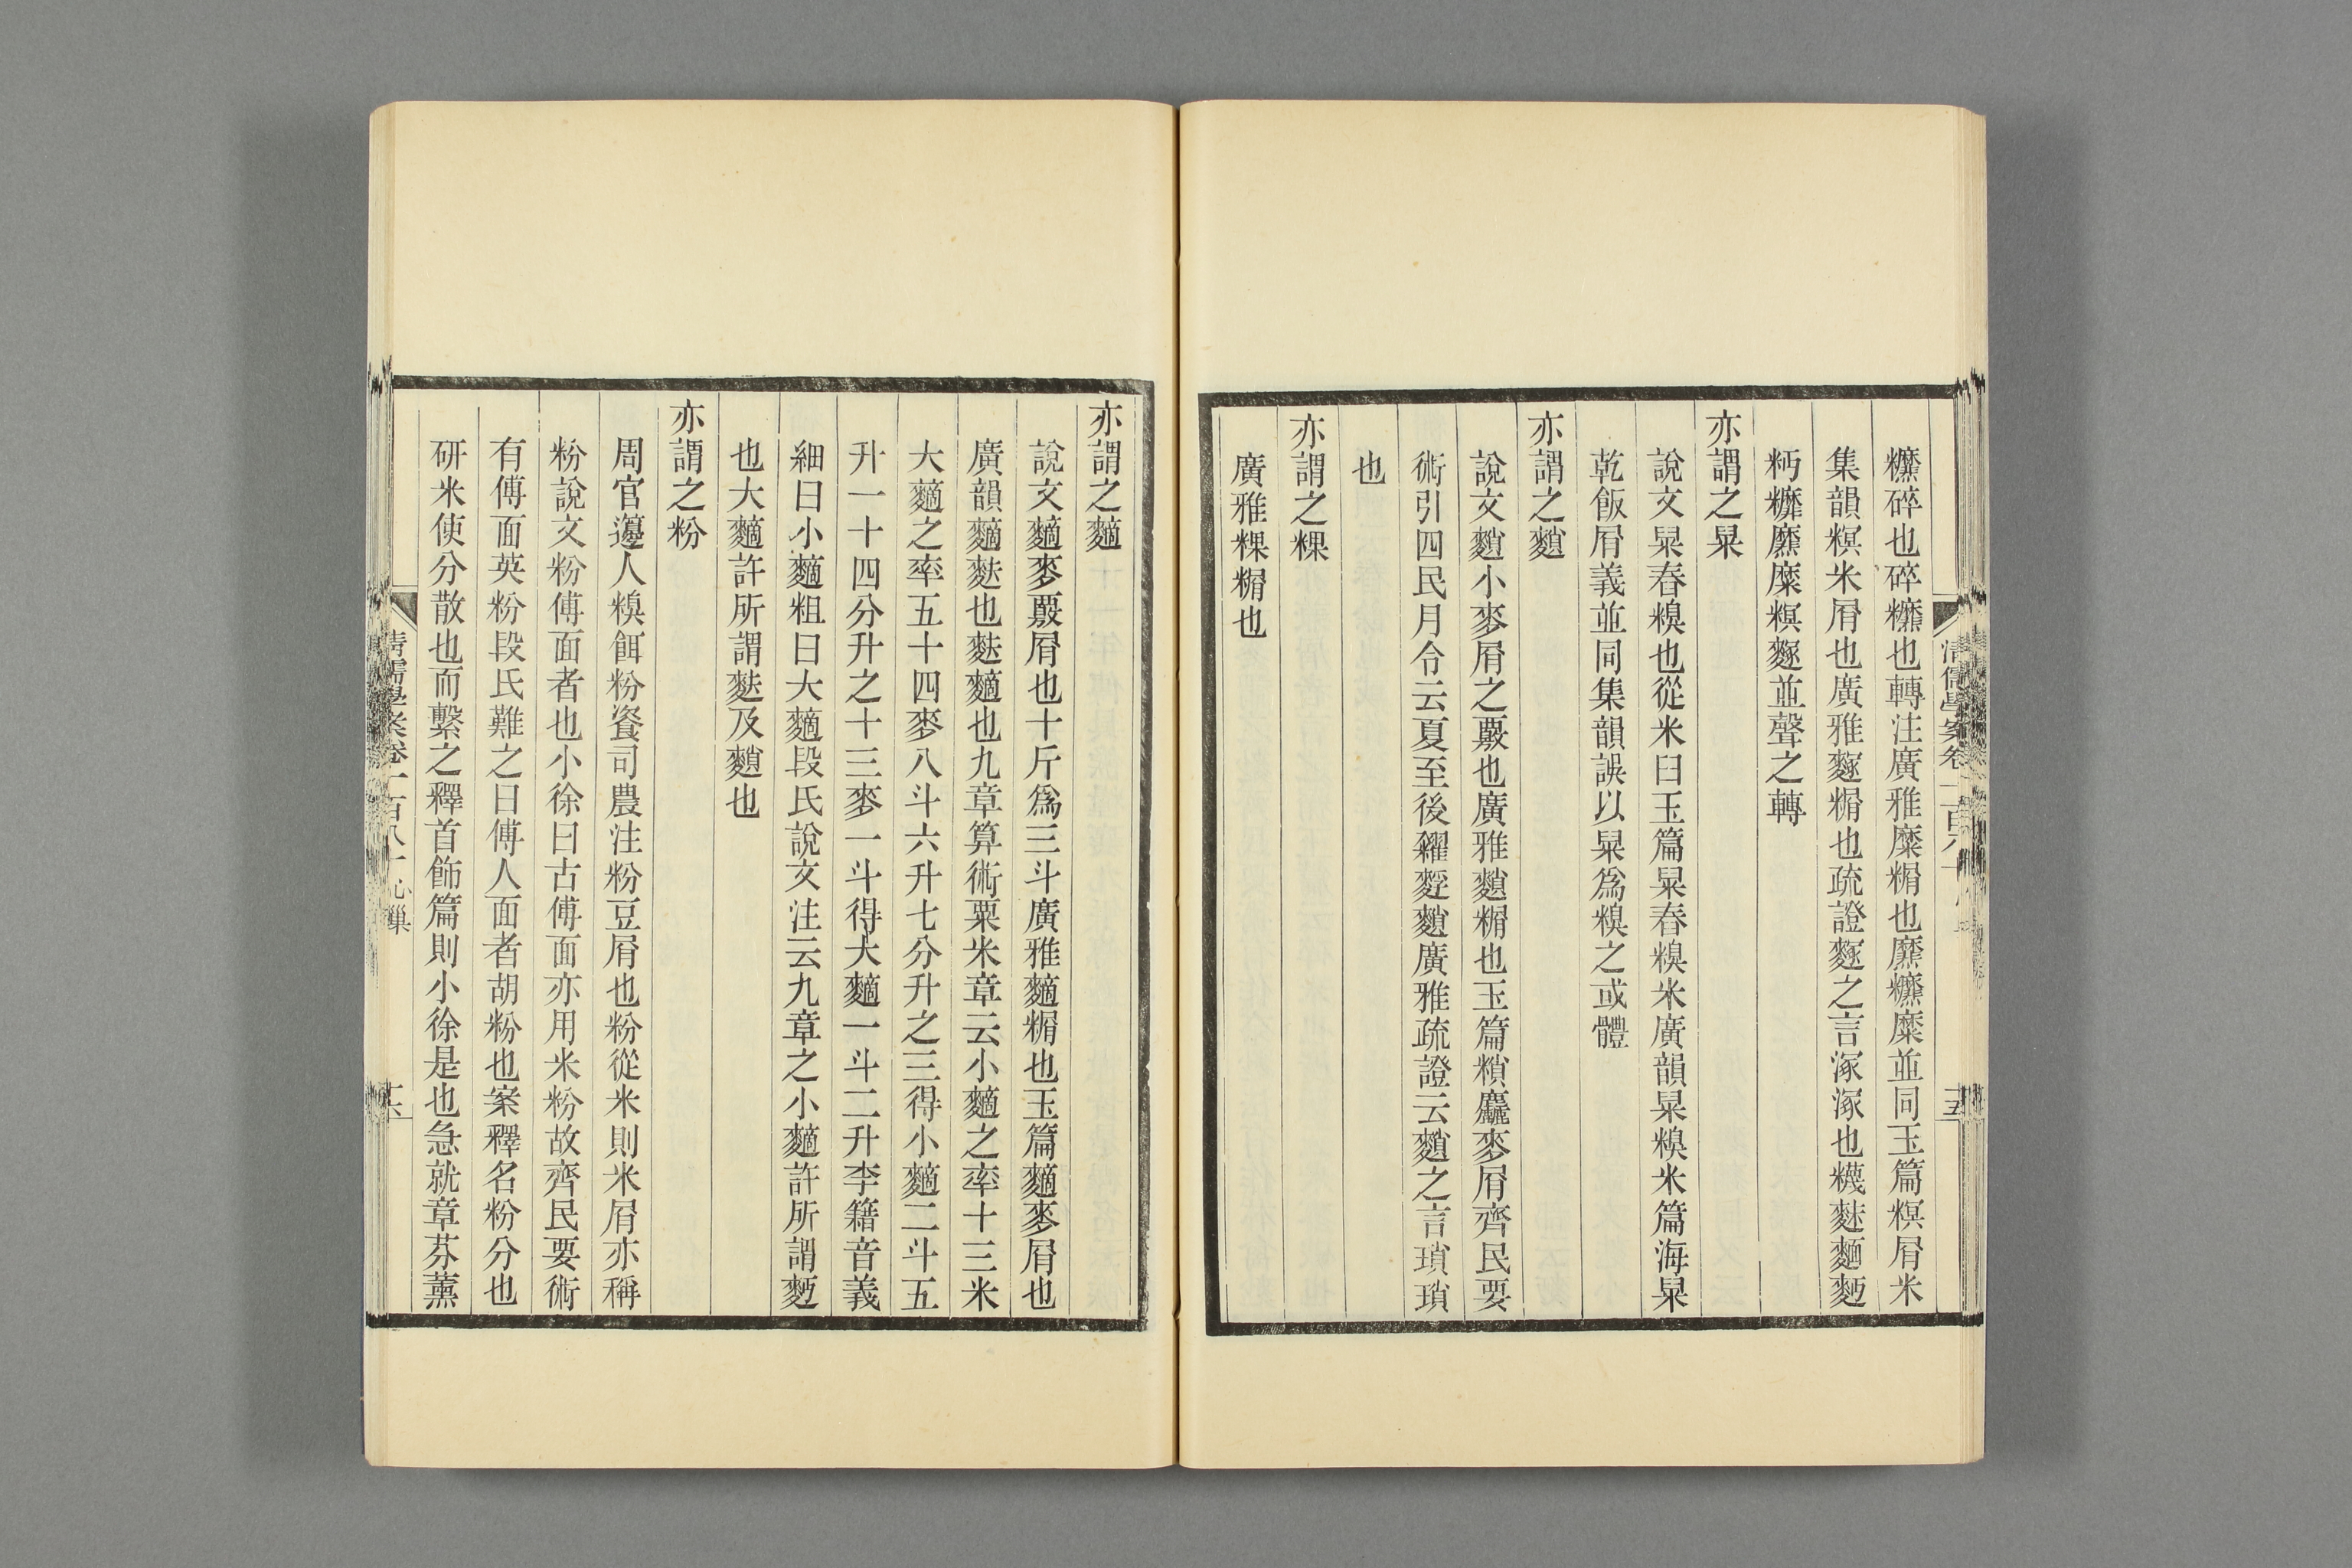 糠碎也碎糠也轉注廣雅糜糏也䊳糠糜並同玉篇粸屑米
集韻粸米屑也廣雅䴿糏也疏證䴿之言溕溕也䊩麩麵麫
麫糠䊳糜粸䴿並聲之轉
亦謂之䊆
說文䊆舂糗也從米臼玉篇䊆舂糗米廣韻䊆糗米篇海䊆
乾飯屑義並同集韻誤以䊆爲糗之或體
亦謂之䴹
說文䴹小麥屑之覈也廣雅䴹糏也玉篇䊝麤麥屑齊民要
術引四民月令云夏至後糴䴷䴹廣雅疏證云䴹之言瑣瑣
也
亦謂之粿
廣雅粿糏也
亦謂之麱
說文麱麥覈屑也十斤爲三斗廣雅麱糏也玉篇麱麥屑也
廣韻麱麩也麩麱也九章算術粟米章云小麱之率十三米
大麱之率五十四麥八斗六升七分升之三得小麱二斗五
升一十四分升之十三麥一斗得大麱一斗二升李籍音義
細曰小麱粗曰大麱段氏說文注云九章之小麱許所謂麪
也大麱許所謂麩及䴹也
亦謂之粉
周官籩人糗餌粉餈司農注粉豆屑也粉從米則米屑亦稱
粉說文粉傅面者也小徐曰古傅面亦用米粉故齊民要術
有傅面英粉段氏難之曰傅人面者胡粉也案釋名粉分也
研米使分散也而繫之釋首飾篇則小徐是也急就章芬薰